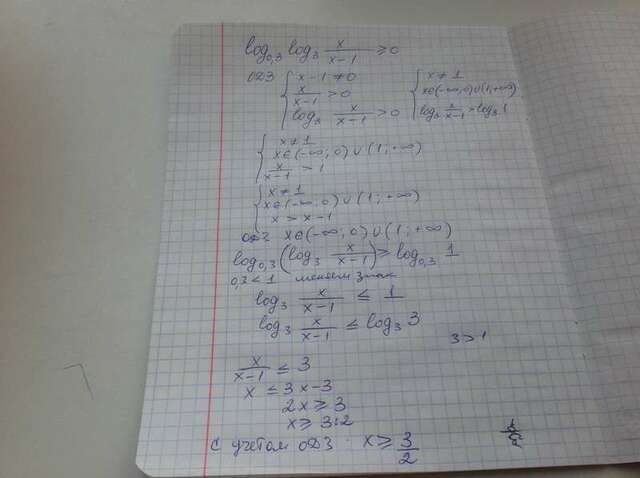 log₀,₃ log₃ x/(x-1) ≥ 0
ОДЗ { x-1≠0 { x≠1
x/(x-1) > 0 x∈(-∞;0)∪(1;+∞)
log₃ x/(x-1) > 0 log₃ x/(x-1) > log₃ 1
{ x≠1
x∈(-∞;0)∪(1;+∞)
x/(x-1) > 1
{ x≠1
x∈(-∞;0)∪(1;+∞)
x > x-1
ОДЗ x∈(-∞;0)∪(1;+∞)
log₀,₃(log₃ x/(x-1)) ≥ log₀,₃ 1
0,3<1 меняем знак
log₃ x/(x-1) ≤ 1
log₃ x/(x-1) ≤ log₃ 3
3>1
x/(x-1) ≤ 3
x ≤ 3x-3
2x ≥ 3
x ≥ 3:2
С учетом ОДЗ x ≥ 3/2